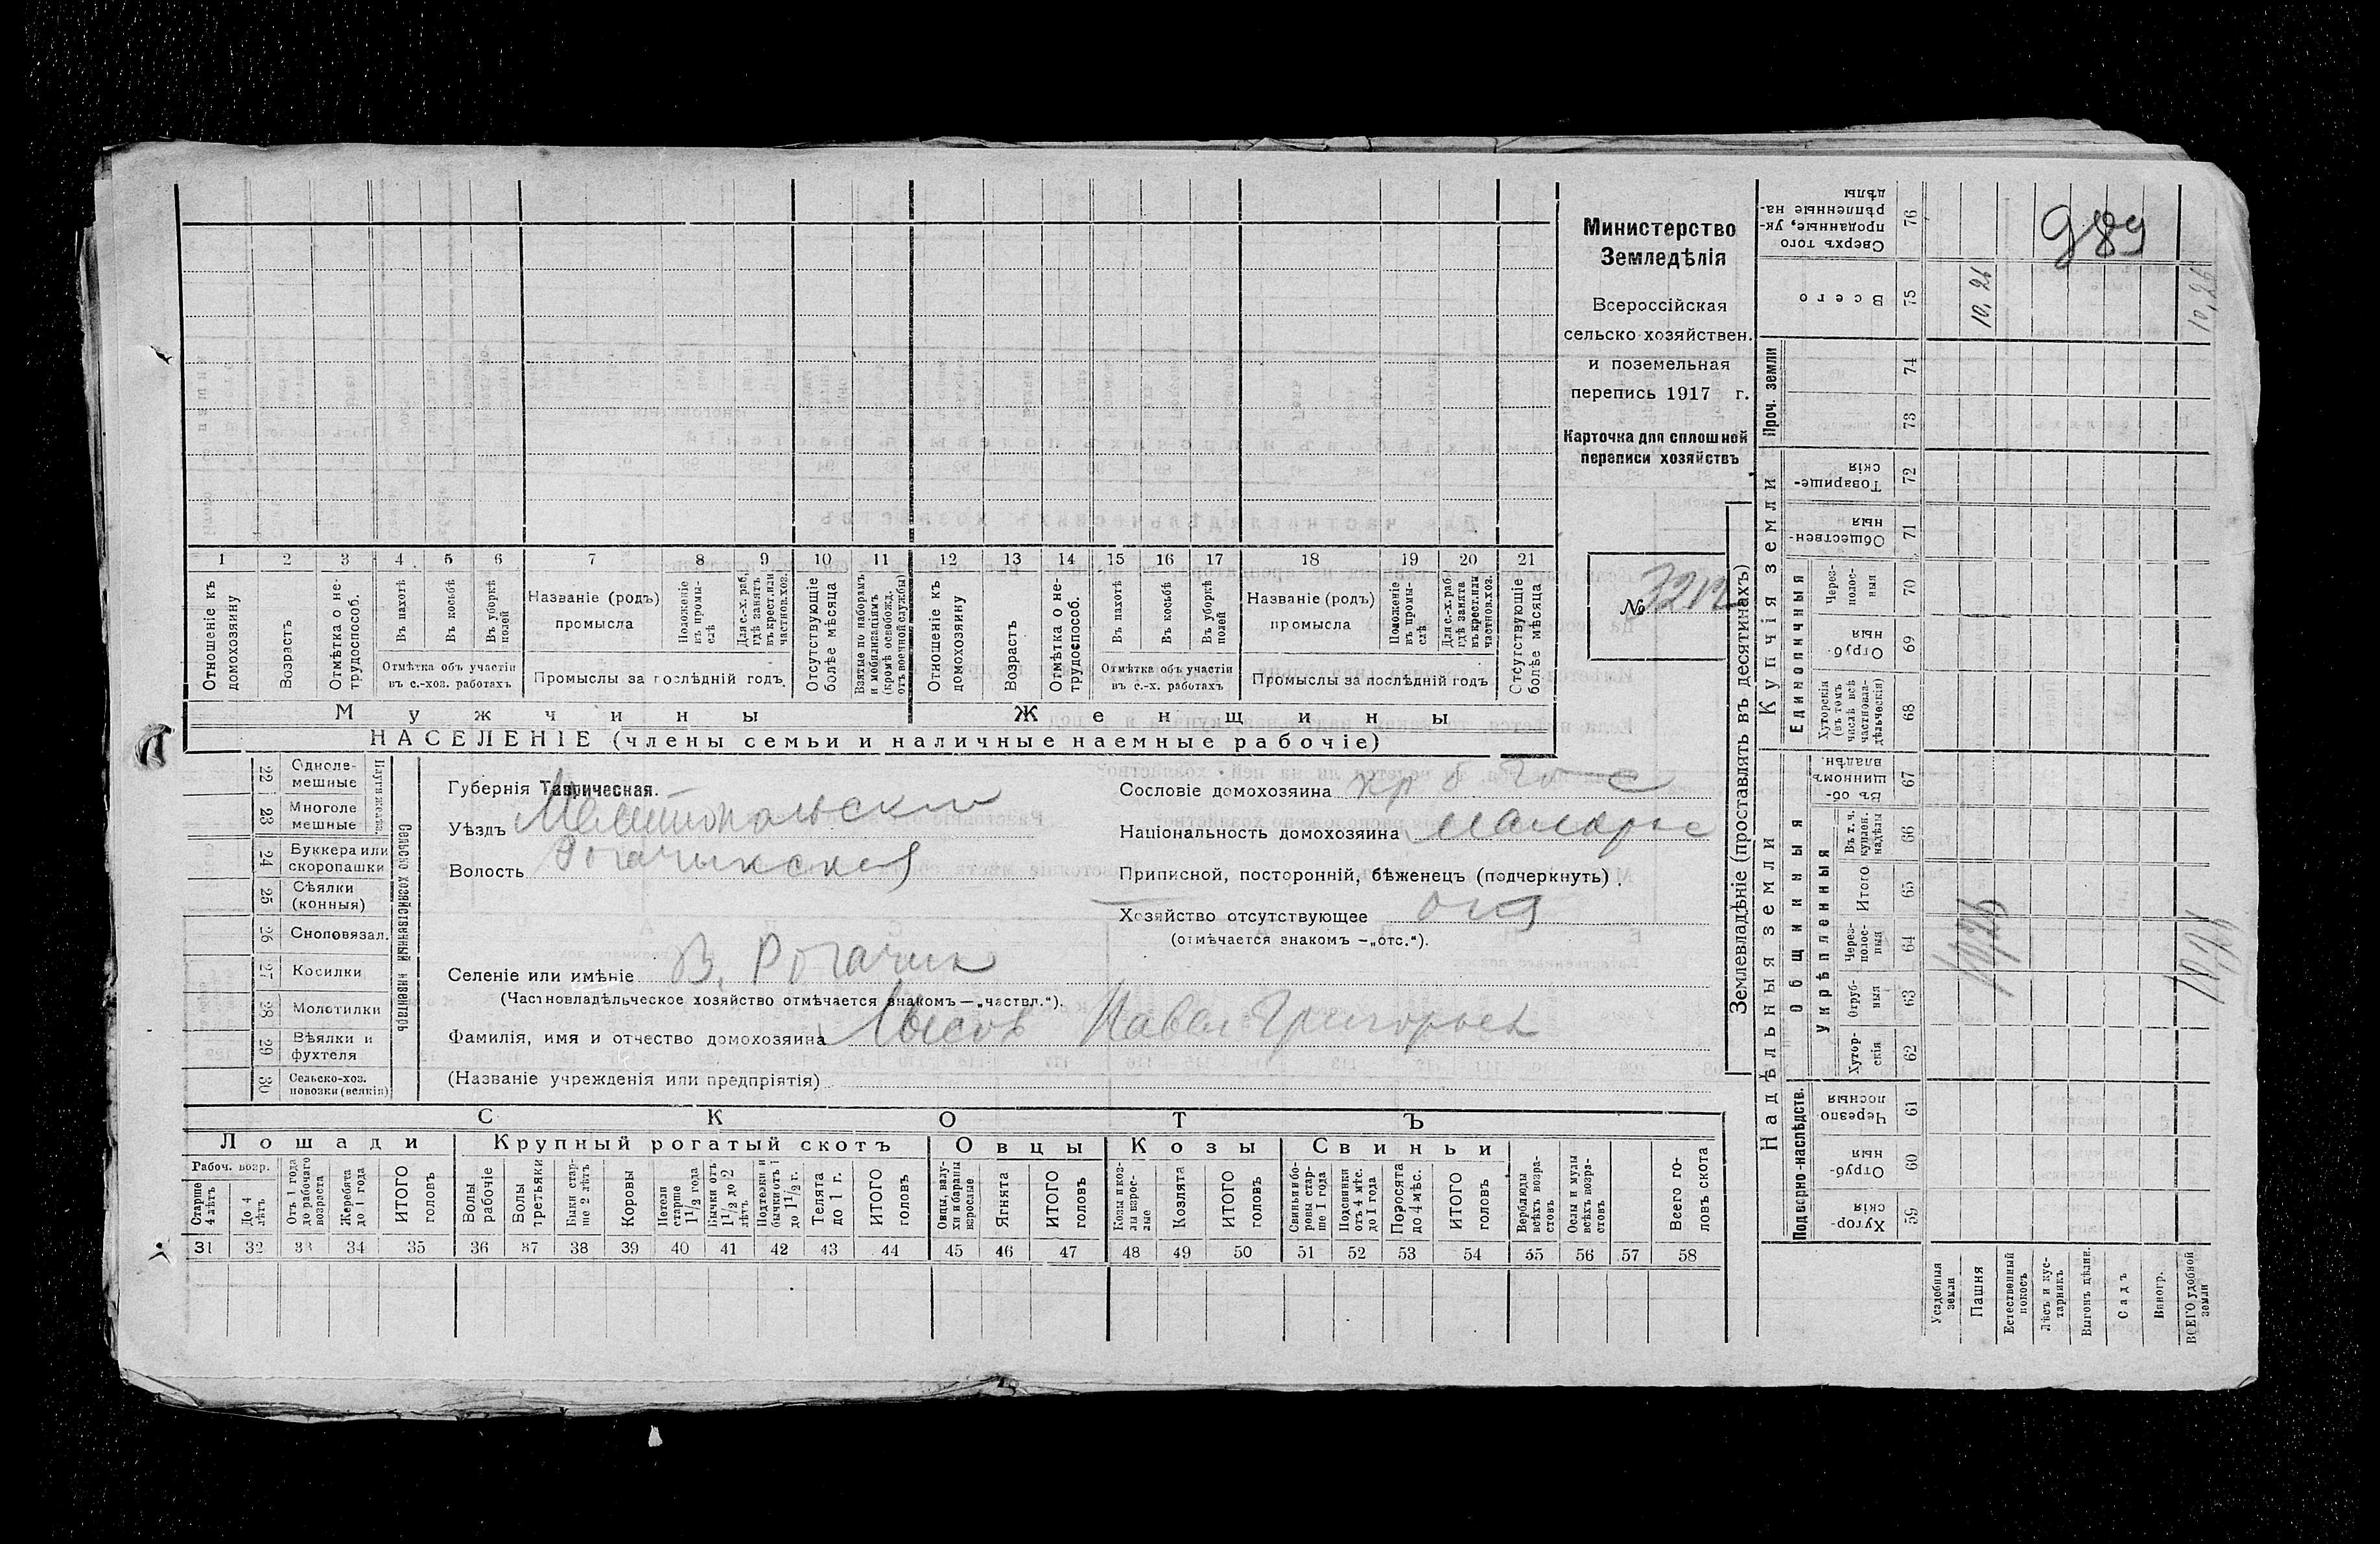 Министерство
Земледѣлія
Всероссійская
сельско-хозяйствен.
и поземельная
перепись 1917 г.
Карточка для сплошной
переписи хозяйствъ
№ 3212
989
1 2 3 4 5 6 7 8 9 10 11 12 13 14 15 16 17 18 19 20 21
Отношеніе къ домохозяину
Возрастъ
Отмѣтка о не-трудоспособ.
Въ пахотѣ
Въ косьбѣ
Въ уборкѣ полей
Отмѣтка объ участіи
въ с.-хоз. работахъ
Названіе (родъ)
промысла
Положеніе въ промы-слѣ
Для с.-х. раб. гдѣ занятъ въ крест. или частнов. хоз.
Промыслы за послѣдній годъ.
Отсутствующіе болѣе мѣсяца
Взятые по наборамъ и мобилизаціямъ (кромѣ освобожд. отъ военной службы)
Отношеніе къ домохозяину
Возрастъ
Отмѣтка о не-трудоспособ.
Въ пахотѣ
Въ косьбѣ
Въ уборкѣ полей
Отмѣтка объ участіи
въ с.-х. работахъ
Названіе (родъ)
промысла
Положеніе въ промы-слѣ
Для с.-х. раб. гдѣ занята въ крест. или частнов. хоз.
Промыслы за послѣдній годъ
Отсутствующіе болѣе мѣсяца
Мужчины
Женщины
НАСЕЛЕНІЕ (члены семьи и наличные наемные рабочіе)
22 Одноле-мешные
23 Многоле мешные
24 Буккера или скоропашки
25 Сѣялки (конныя)
26 Сноповязал.
27 Косилки
28 Молотилки
29 Вѣялки и фухтеля
30 Сельско-хоз. повозки (всякія)
Сельско хозяйственный инвентарь
Губернія Таврическая.
Уѣздъ Мелитопольскій
Волость Рогачикская
Селеніе или имѣніе В. Рогачик
(Частновладѣльческое хозяйство отмѣчается знакомъ — „частвл.“).
Фамилія, имя и отчество домохозяина Лысов Павел Григорьев
(Названіе учрежденія или предпріятія)
Сословіе домохозяина
Національность домохозяина малорос
Приписной, посторонній, бѣженецъ (подчеркнуть).
Хозяйство отсутствующее
(отмѣчается знакомъ — „отс.“).
СКОТЪ
Лошади
Крупный рогатый скотъ
Овцы
Козы
Свиньи
Рабоч. возр.
Старше 4 лѣтъ
До 4 лѣтъ
Отъ 1 года до рабочаго возраста
Жеребята до 1 года
ИТОГО головъ
Волы рабочіе
Волы третьяки
Быки стар-ше 2 лѣтъ
Коровы
Нетели старше 1½ года
Бычки отъ 1½ до 2 лѣтъ
Подтелки и бычки отъ 1 до 1½ г.
Телята до 1 г.
ИТОГО головъ
Овцы, валу-хи и бараны взрослые
Ягнята
ИТОГО головъ
Козы и коз-лы взрос-лые
Козлята
ИТОГО головъ
Свиньи и бо-ровы стар-ше 1 года
Подсвинки отъ 4 мѣс. до 1 года
Поросята до 4 мѣс.
ИТОГО головъ
Верблюды всѣхъ возра-стовъ
Ослы и мулы всѣхъ возра-стовъ
Всего го-ловъ скота
31 32 33 34 35 36 37 38 39 40 41 42 43 44 45 46 47 48 49 50 51 52 53 54 55 56 57 58
Землевладѣніе (проставлять въ десятинахъ)
Надѣльныя земли
Купчія земли
Проч. земли
Подворно-наслѣдств.
Общинныя
Укрѣпленныя
Единоличныя
Хутор-скія 59
Отруб-ныя 60
Черезпо лосныя 61
Хутор-скія 62
Отруб-ныя 63
Через-полос-ныя 64
Итого 65
Въ т. ч. куплен. надѣлы 66
Въ об-щинномъ владѣн. 67
Хуторскія (въ томъ числѣ всѣ частновла-дѣльческія) 68
Отруб-ныя 69
Через-полос-ныя 70
Обществен-ныя 71
Товарище-скія 72
73
74
Всего 75
Сверхъ того проданные, ук-рѣпленные на-дѣлы 76
Усадебныя земли
Пашня 10,26 10,26
Естественный покосъ
Лѣсъ и кус-тарникъ
Выгонъ цѣлин.
Садъ
Виногр.
ВСЕГО удобной земли 10,26 10,26